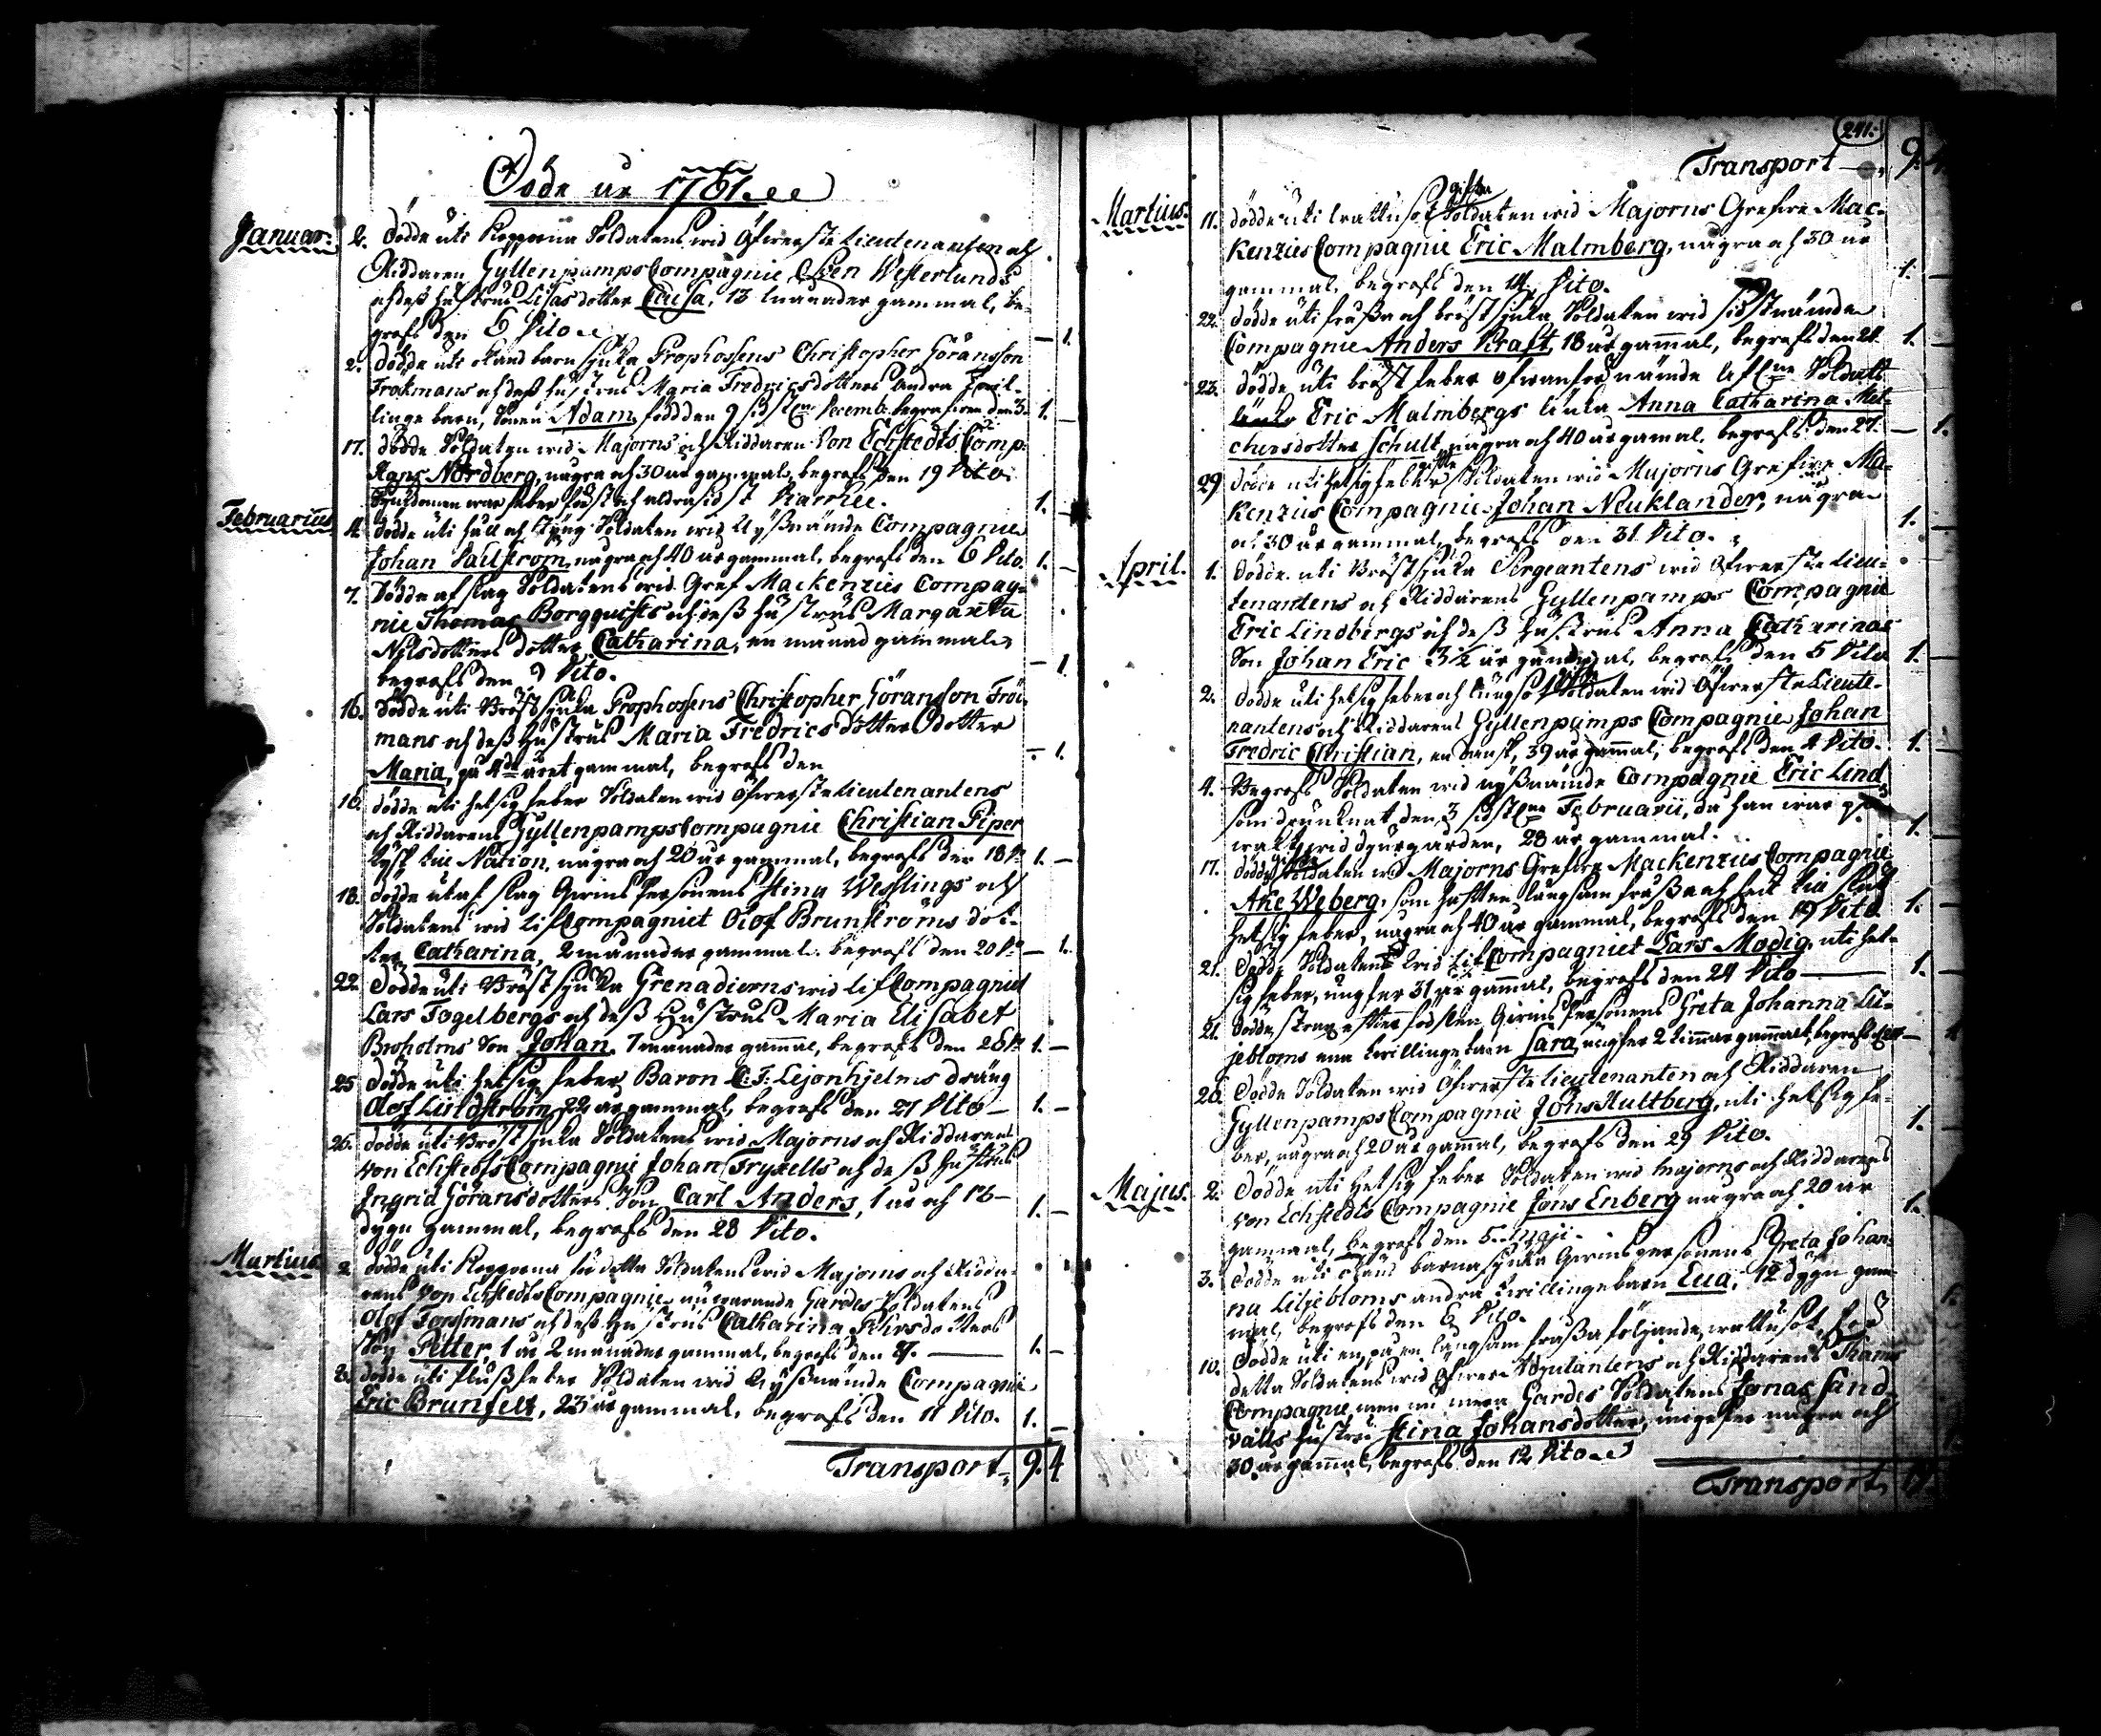 Döde år 1761.
Januar: 2. Dödde uti Kopporna Soldatens wid Öfwerste Lieutenanten och
Riddaren Gyllenpamps Compagnie Swen Westerlunds
och dess hustrus Lisas dotter Caisa, 13 månader gammal, be-
grofs den 6 Dito. — 1.
2. dödde uti okänd barn siuka Prophossens Christopher Göransson
Frökmans och dess hustrus Maria Fredricsdotters andra
linge barn, Sonen Adam, född den 9 sidstl. Decemb. begrafwen den 3. 1. —
17. dödde Soldaten wid Majorns och Riddaren Von Echstedts Comp:
Hans Nordberg, några och 30 år gammal, begrofs den 19 Dito.
Siukdomen war feber först och aldrasidst Diarrhée. 1. —
Februarius 4. dödde uti håll och styng Soldaten wid nyssnämde Compagnie
Johan Dalström, några och 40 år gammal, begrofs den 6 Dito. 1. —
7. Dödde af slag Soldatens wid Gref Mackenzies Compag-
nie Thomas Borgquists och dess hustrus Margareta
Nilsdotters dotter Catharina, en månad gammal,
begrofs den 9 Dito. — 1.
16. Dödde uti Bröstsiuka Prophossens Christopher Göransson Frök-
mans och dess hustrus Maria Fredrics Dotter dotter
Maria, på 4de året gammal, begrofs den — 1.
16. dödde uti hetsig feber Soldaten wid Öfwerste Lieutenantens
och Riddarens Gyllenpamps Compagnie Christian Piper
tysk till Nation, några och 20 år gammal, begrofs den 18 Do 1. —
18. dödde utaf slag Qwins Personens Stina Wesslings och
Soldatens wid Lif Compagniet Olof Brunströms dot-
ter Catharina, 2 månader gammal. begrofs den 20 Do — 1.
22. Dödde uti Bröst siuka Grenadierns wid Lif Compagniet
Lars Fogelbergs och dess Hustrus Maria Elisabet
Broholms Son Johan, 7 månader gammal, begrofs den 26 Do 1. —
25 Dödde uti hetsig feber Baron C: F: Lejonhjelms dräng
Olof Lindström, 22 år gammal, begrofs den 27 Dito — 1. —
26. dödde uti Bröst siuka Soldatens wid Majorns och Riddarens
von Echstedts Compagnie Johan Fryxells och dess hustrus
Ingrid Göransdotters Son Carl Anders, 1 år och 16
dygn gammal, begrofs den 28 Dito. 1. —
Martius 2 dödde uti Kopporna för detta Soldatens wid Majorns och Ridda-
rens Von Echstedts Compagnie, nuwarande Gardes Soldatens
Olof Forssmans och dess hustrus Catharina Pehrsdotters
Son Petter, 1 år 2 månader gammal, begrofs den 8. 1. —
8. dödde uti flussfeber Soldaten wid nyssnämde Compagnie
Eric Brunfelt, 23 år gammal, begrofs den 11 Dito. 1. —
Transport, 9. 4
241.
Transport —, 9. 4
Martius. 11. dödde uti wattusot gifta Soldaten wid Majorns Grefwe Mac-
kenzies Compagnie Eric Malmberg, några och 30 år
gammal, begrofs den 14 Dito. 1. —
22. dödde uti frossa och bröst siuka Soldaten wid sidstnämde
Compagnie Anders Kraft, 18 år gammal, begrofs den 24. 1. —
23. dödde uti bröst feber ofwanför nämde Afl:ne Soldats
Eric Malmbergs Enka Anna Catharina Mel-
chersdotter Schult, några och 40 år gamal. begrofs den 27. — 1.
29 dödde uti hetsig feber gifta Soldaten wid Majorns Grefwe Ma-
kenzies Compagnie Johan Neuklander, några
och 30 år gammal, begrofs den 31 Dito. 1. —
April. 1. dödde uti Bröstsiuka Sergeantens wid Öfwerste Lieu-
tenantens och Riddarens Gyllenpamps Compagnie
Eric Lindbergs och dess hustrus Anna Catharinas
Son Johan Eric 3½ år gammal, begrofs den 5 Dito 1. —
2. dödde uti hetsig feber och lungsot Soldaten wid Öfwerste Lieute-
nantens och Riddarens Gyllenpamps Compagnie Johan
Fredric Christian, en dansk, 39 år gammal, begrofs den 4 Dito. 1. —
4. Begrofs Soldaten wid nyssnämde Compagnie Eric Lind
som drunknat den 3 sidstl:ne Februarii, då han war på
wakt wid djurgården, 28 år gammal. 1. —
17. dödde gifta Soldaten wid Majorns Grefwe Mackenzies Compagnie
Åke Weberg, som haft en långsam frossa och sedt til slut
hetsig feber, några och 40 år gammal, begrofs den 19 Dito 1. —
21. Dödde Soldaten wid Lif Compagniet Lars Modig, uti het-
sig feber, ungfer 31 år gammal, begrofs den 24 Dito — 1. —
21. dödde, strax efter födslen Qwins Personens Greta Johanna Lil-
jebloms ena twillinge barn Sara, ungfer 2 timmar gammalt, begrofs — 1.
26. Dödde Soldaten wid Öfwerste Lieutenanten och Riddaren
Gyllenpamps Compagnie Jöns Hultberg, uti hetsig fe-
ber, några och 20 år gammal, begrofs den 29 Dito. 1. —
Majus. 2. Dödde uti hetsig feber Soldaten wid Majorns och Riddarens
von Echstedts Compagnie Jöns Enberg några och 20 år
gammal, begrofs den 5. Maji. 1.
3. Dödde uti okänd barnasjuka Qwins personens Greta Johan-
na Liljebloms andra twillinge barn Eva, 12 dygn gam-
mal, begrofs den 6 Dito. 1.
10. Dödde uti en på en långsam frossa följande wattusot, för
detta Soldatens wid Öfwer Adjutantens och Riddarens Thams
Compagnie, men nu mera Gardes Soldatens Jonas Sand-
valls hustru Stina Johansdotter, ungefer några och
30 år gammal, begrofs den 12 Dito
Transport,